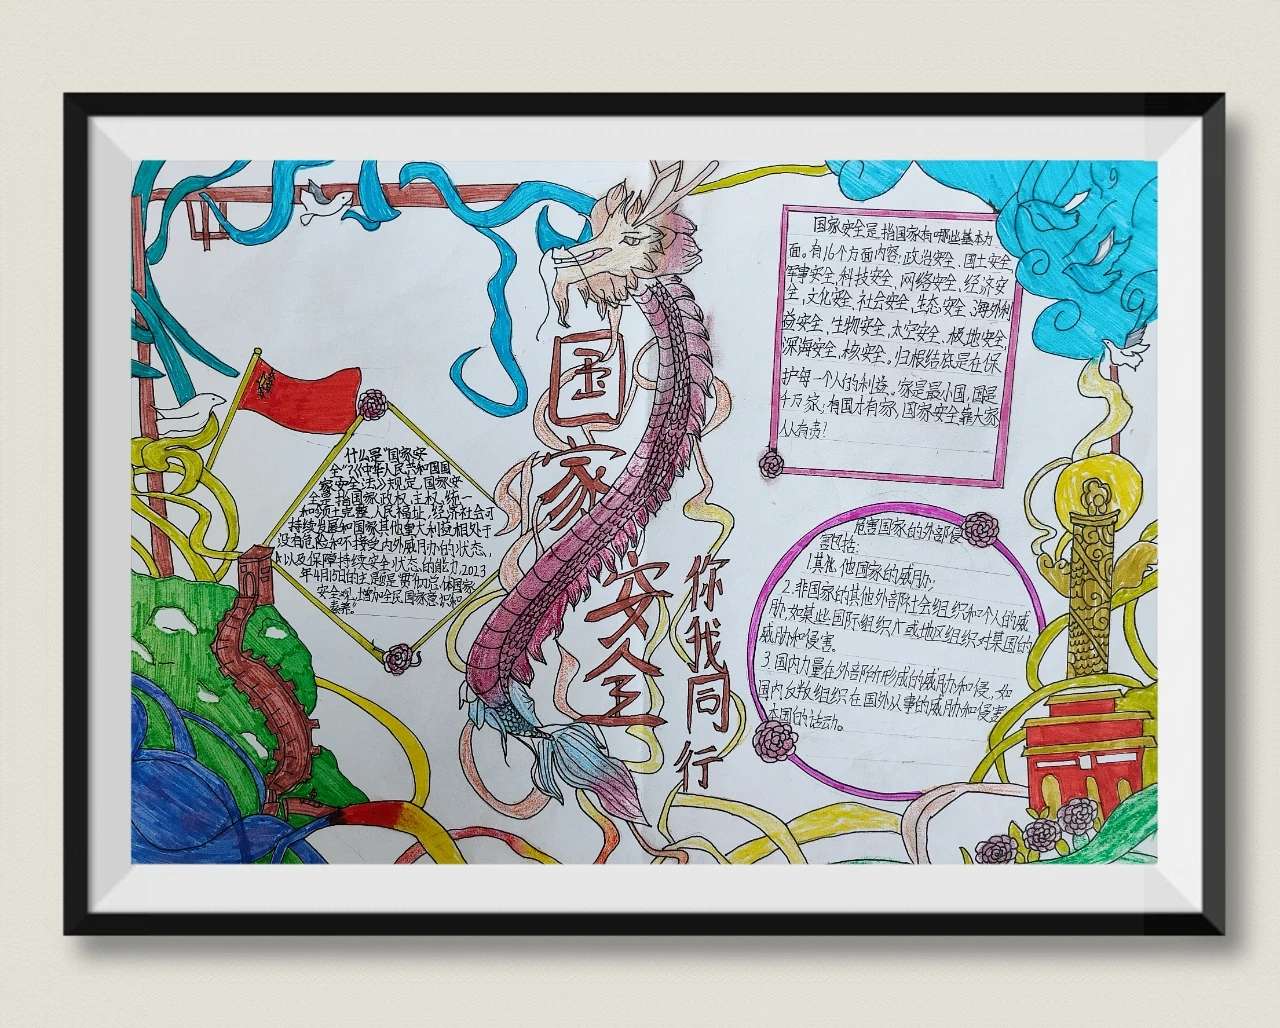 国家
安全
你我同行
什么是“国家安
全”?《中华人民共和国国
家安全法》规定,国家安
全是指国家政权、主权、统一
和领土完整、人民福祉、经济社会可
持续发展和国家其他重大利益相处于
没有危险和不受内外威胁的状态,
以及保障持续安全状态的能力,2023
年4月15日的主题是贯彻总体国家
安全观,增加全民国家意识和
素养。”
国家安全是指国家有哪些基本方
面。有16个方面内容:政治安全、国土安全、
军事安全,科技安全、网络安全、经济安
全,文化安全、社会安全、生态安全、海外利
益安全、生物安全、太空安全、极地安全、
深海安全、核安全。归根结底是在保
护每一个人的利益。家是最小国,国是
千万家;有国才有家,国家安全靠大家
人人有责!
危害国家的外部侵
害包括:
1.其他,他国家的威胁;
2.非国家的其他外部社会组织和个人的威
胁,如某些国际组织 或地区组织对某国的
威胁和侵害。
3.国内力量在外部所形成的威胁和侵,如
国内反叛组织在国外从事的威胁和侵害
本国的活动。